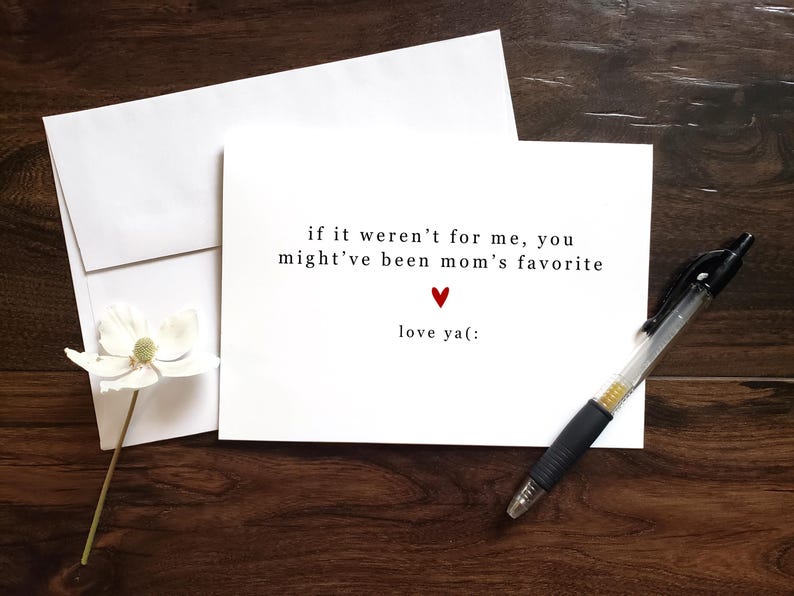 if it weren’t for me, you
might’ve been mom’s favorite
love ya(: